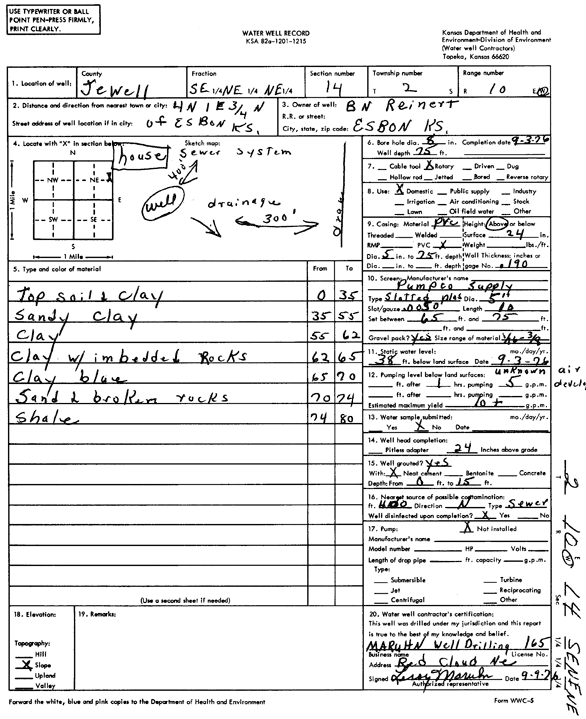 USE TYPEWRITER OR BALL
POINT PEN-PRESS FIRMLY,
PRINT CLEARLY.
WATER WELL RECORD
KSA 82a-1201-1215
Kansas Department of Health and
Environment-Division of Environment
(Water well Contractors)
Topeka, Kansas 66620
1. Location of well: County Jewell Fraction SE 1/4 NE 1/4 NE 1/4 Section number 14 Township number T 2 S Range number R 10 E/W
2. Distance and direction from nearest town or city: 4N 1E 3/4 N
Street address of well location if in city: of ESBON KS.
3. Owner of well: BN Reinert
R.R. or street:
City, state, zip code: ESBON KS.
4. Locate with "X" in section below:
Sketch map:
N
NW NE X
W E
SW SE
S
1 Mile
1 Mile
house sewer system
400'
well drainage
300'
draw
5. Type and color of material From To
Top soil & clay 0 35
Sandy clay 35 55
Clay 55 62
Clay w/ imbedded Rocks 62 65
Clay blue 65 70
Sand & broken rocks 70 74
Shale 74 80
(Use a second sheet if needed)
6. Bore hole dia. 8 in. Completion date 9-3-76
Well depth 75 ft.
7. Cable tool X Rotary Driven Dug
Hollow rod Jetted Bored Reverse rotary
8. Use: X Domestic Public supply Industry
Irrigation Air conditioning Stock
Lawn Oil field water Other
9. Casing: Material PVC Height: Above or below
Threaded Welded Surface 24 in.
RMP PVC X Weight lbs./ft.
Dia. 5 in. to 75 ft. depth Wall Thickness: inches or
Dia. in. to ft. depth gage No. .190
10. Screen: Manufacturer's name
Pumpco Supply
Type Slotted Dia. 5"
Slot/gauze Length 10
Set between 65 ft. and 75 ft.
ft. and ft.
Gravel pack? yes Size range of material
11. Static water level: mo./day/yr.
38 ft. below land surface Date 9-3-76
12. Pumping level below land surfaces: unknown
ft. after 1 hrs. pumping 5 g.p.m.
ft. after hrs. pumping g.p.m.
Estimated maximum yield 10+ g.p.m.
air
develop
13. Water sample submitted: mo./day/yr.
Yes X No Date
14. Well head completion:
Pitless adapter 24 Inches above grade
15. Well grouted? yes
With: X Neat cement Bentonite Concrete
Depth: From 0 ft. to 15 ft.
16. Nearest source of possible contamination:
ft. 400 Direction N Type Sewer
Well disinfected upon completion? X Yes No
17. Pump: X Not installed
Manufacturer's name
Model number HP Volts
Length of drop pipe ft. capacity g.p.m.
Type:
Submersible Turbine
Jet Reciprocating
Centrifugal Other
18. Elevation:
Topography:
Hill
X Slope
Upland
Valley
19. Remarks:
20. Water well contractor's certification:
This well was drilled under my jurisdiction and this report
is true to the best of my knowledge and belief.
MARUHN Well Drilling 165
Business name License No.
Address Red Cloud Ne
Signed Leroy Maruhn Date 9-9-76
Authorized representative
Forward the white, blue and pink copies to the Department of Health and Environment
Form WWC-5
T 2
R 10 E W
Sec 14
1/4 1/4 1/4 SE NE NE